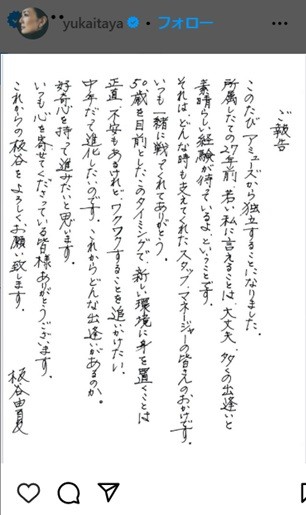 yukaitaya
フォロー
ご報告
このたびアミューズから独立することになりました。
所属したての27年前、若い私に言えることは、大丈夫、多くの出逢いと
素晴らしい経験が待っているよ、ということです。
それは、どんな時も支えてくれたスタッフ、マネージャーの皆さんのおかげです。
いつも一緒に戦ってくれてありがとう。
50歳を目前としたこのタイミングで、新しい環境に身を置くことは
正直、不安もあるけれど、ワクワクすることを追いかけたい。
中年だって進化したいのです。これからどんな出逢いがあるのか。
好奇心を持って進みたいと思います。
いつも心を寄せてくださっている皆様ありがとうございます。
これからの板谷をよろしくお願い致します。
板谷由夏